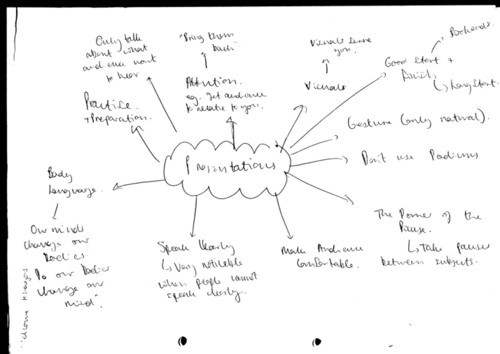 Only talk
about what
audience want
to hear
"Bring them
back"
Visuals leave
you.
Bookends.
Good Start +
finish.
↳ Long Start.
Attention.
eg. Get audience
to relate to you.
Visuals
Practise
+ Preparation.
Gesture (only natural).
Presentations
Don't use Podiums
Body
Language.
The Power of the
Pause.
↳ Take pauses
between subjects.
Our minds
change our
bodies.
Do our bodies
change our
mind"
Speak clearly
↳ Very noticeable
when people cannot
speak clearly.
Make Audience
Comfortable.